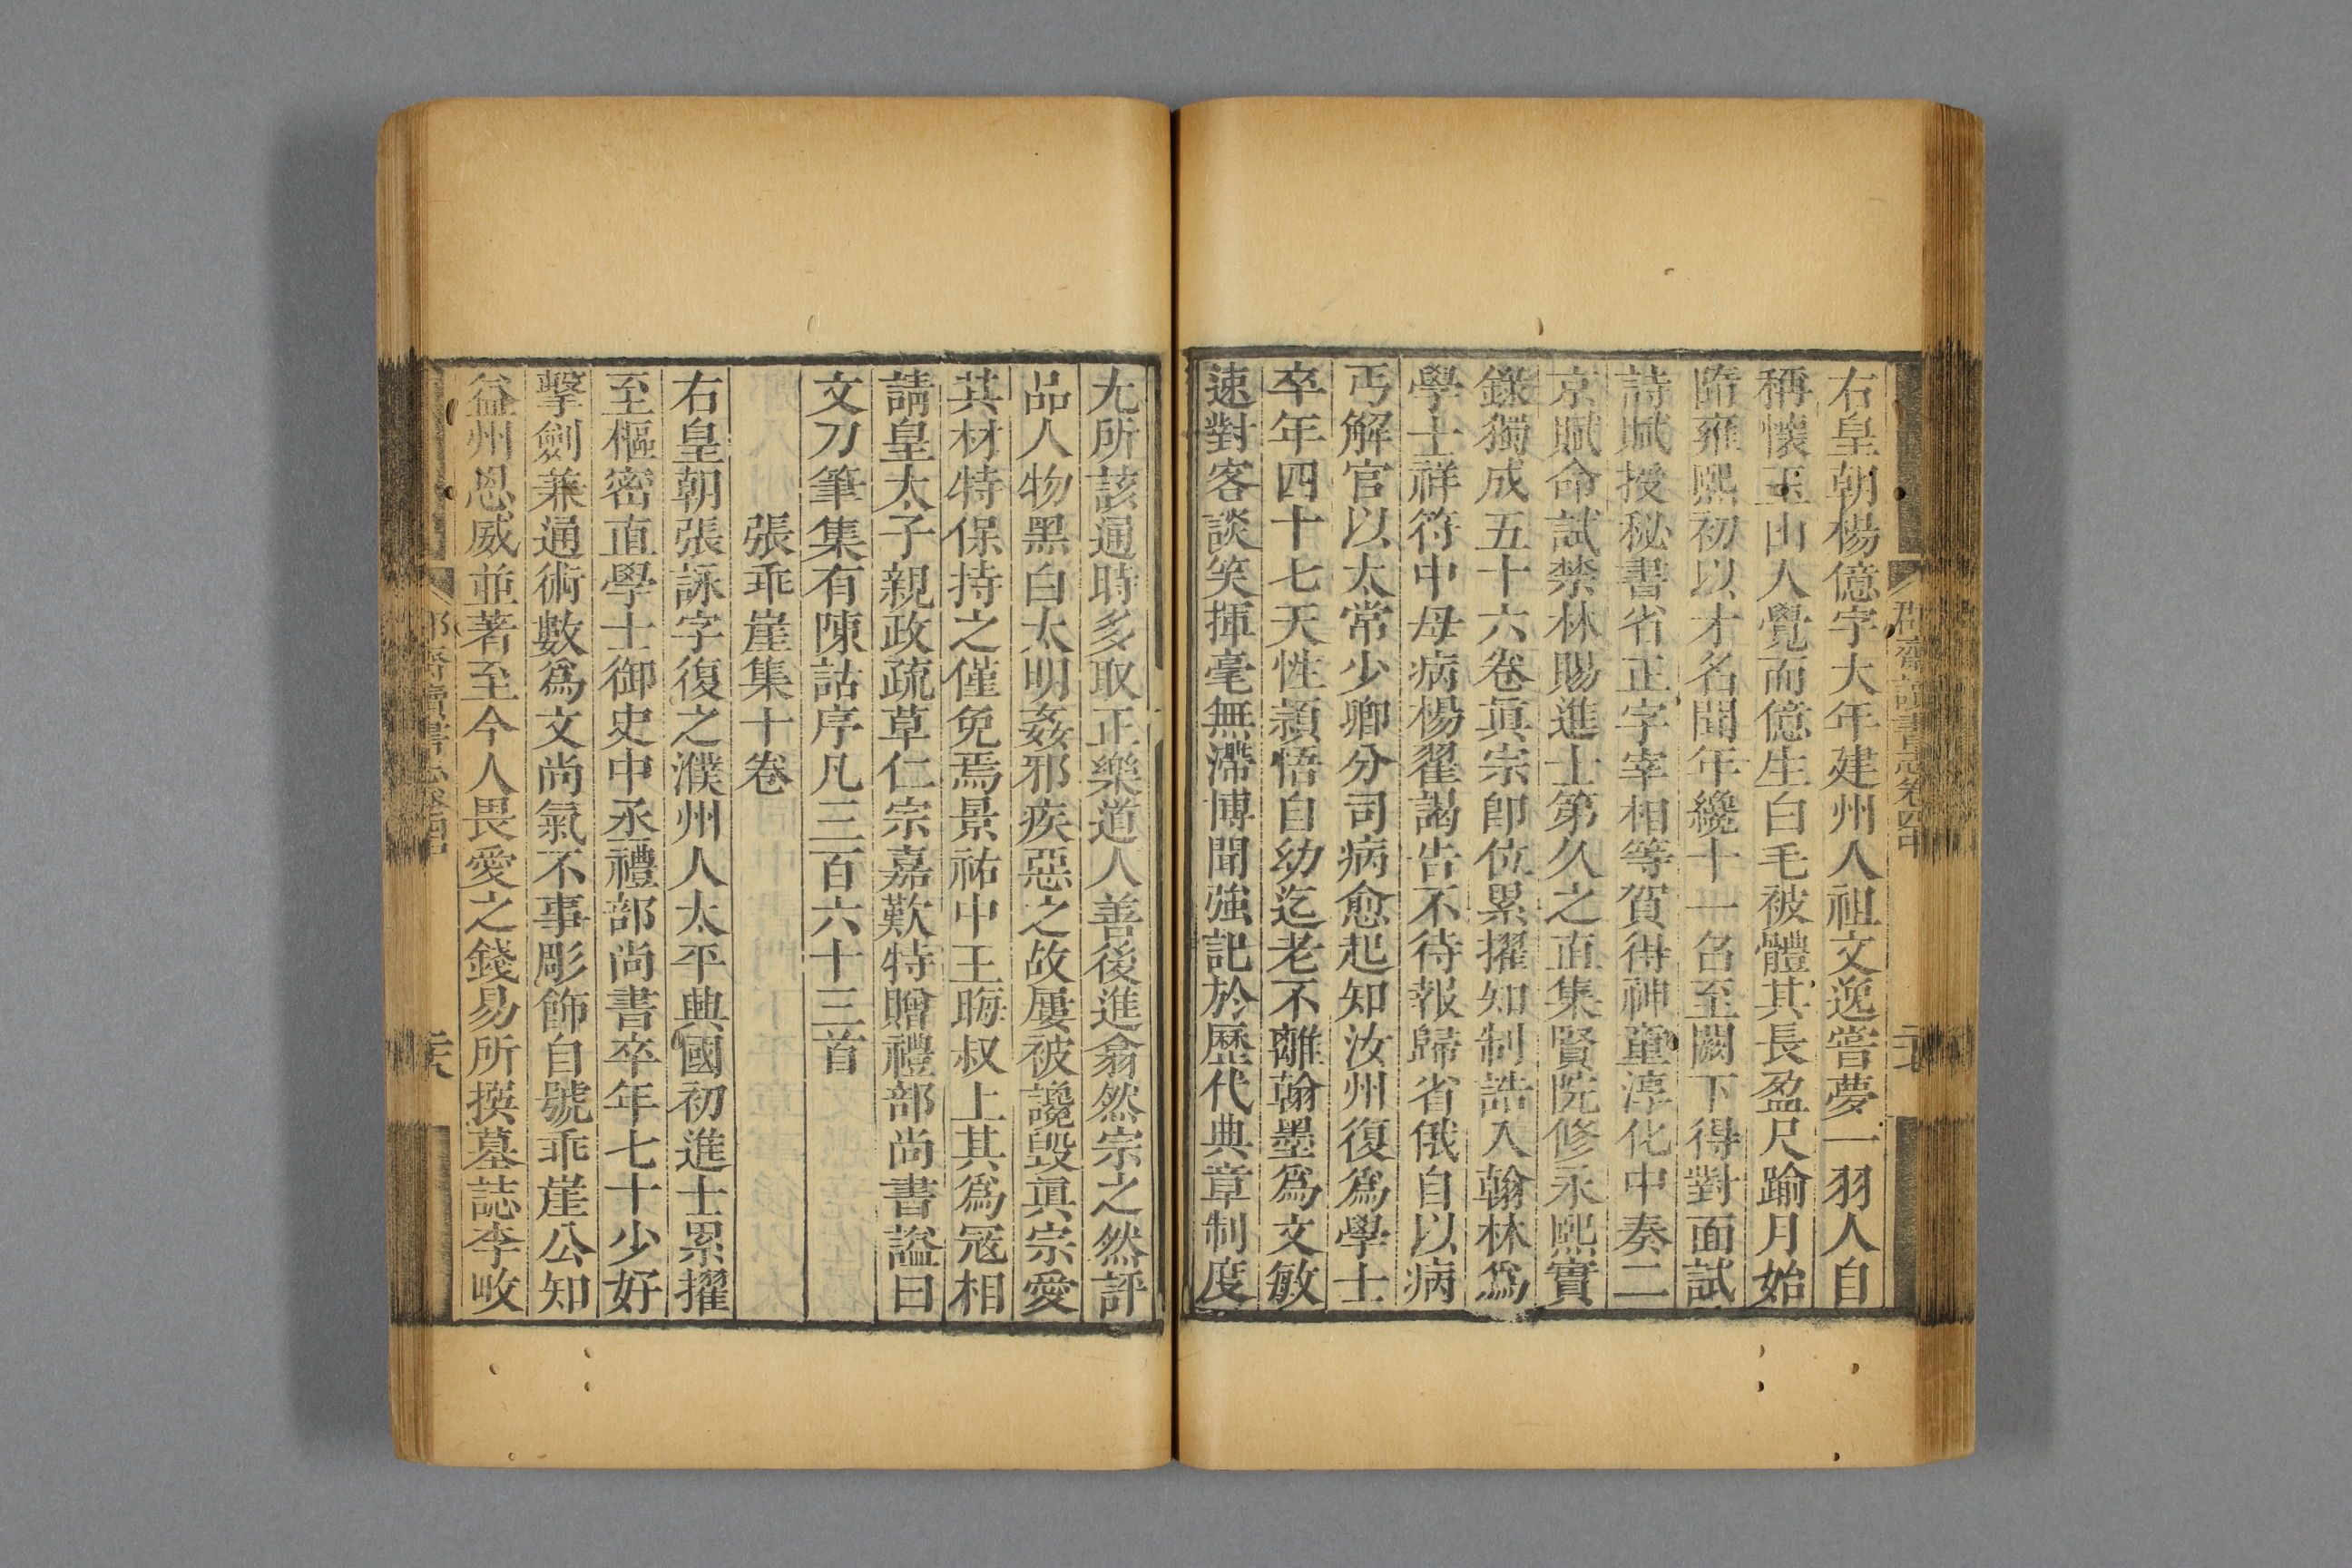 右皇朝楊億字大年建州人祖文逸嘗夢一羽人自
稱懷玉山人覺而億生白毛被體其長盈尺踰月始
隋雍熙初以才名聞年纔十一召至闕下得對面試
詩賦授秘書省正字宰相等賀得神童淳化中奏二
京賦命試禁林賜進士第久之直集賢院修永熙實
錄獨成五十六卷眞宗卽位累擢知制誥入翰林爲
學士祥符中母病楊翟謁告不待報歸省俄自以病
丐解官以太常少卿分司病愈起知汝州復爲學士
卒年四十七天性潁悟自幼迄老不離翰墨爲文敏
速對客談笑揮毫無滯博聞強記於歷代典章制度
尢所該通時多取正樂道人善後進翕然宗之然評
品人物黑白太明姦邪疾惡之故屢被讒毁眞宗愛
其材特保持之僅免焉景祐中王晦叔上其爲冦相
請皇太子親政疏草仁宗嘉歎特贈禮部尚書謚曰
文刀筆集有陳詁序凡三百六十三首
張乖崖集十卷
右皇朝張詠字復之濮州人太平典國初進士累擢
至樞密直學士御史中丞禮部尚書卒年七十少好
擊劍兼通術數爲文尚氣不事彫飾自號乖崖公知
益州恩威並著至今人畏愛之錢易所撰墓誌李畋
郡齋讀書志卷四中